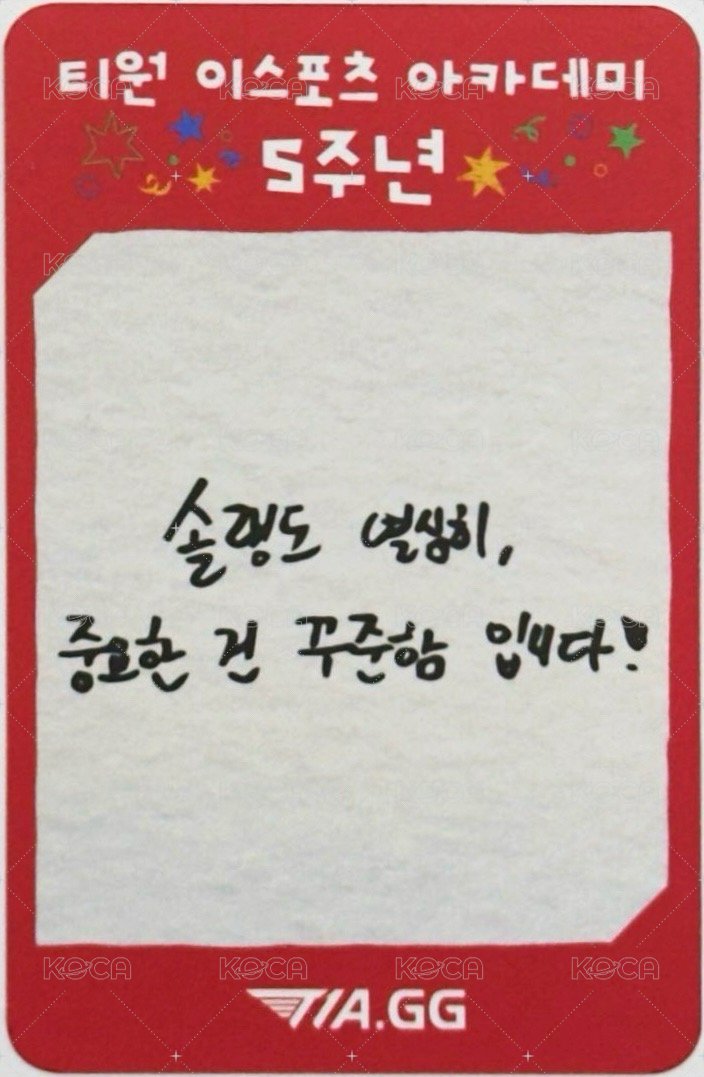 티원 이스포츠 아카데미
5주년
솔랭도 열심히,
중요한 건 꾸준함 입니다!
TIA.GG
KOCA